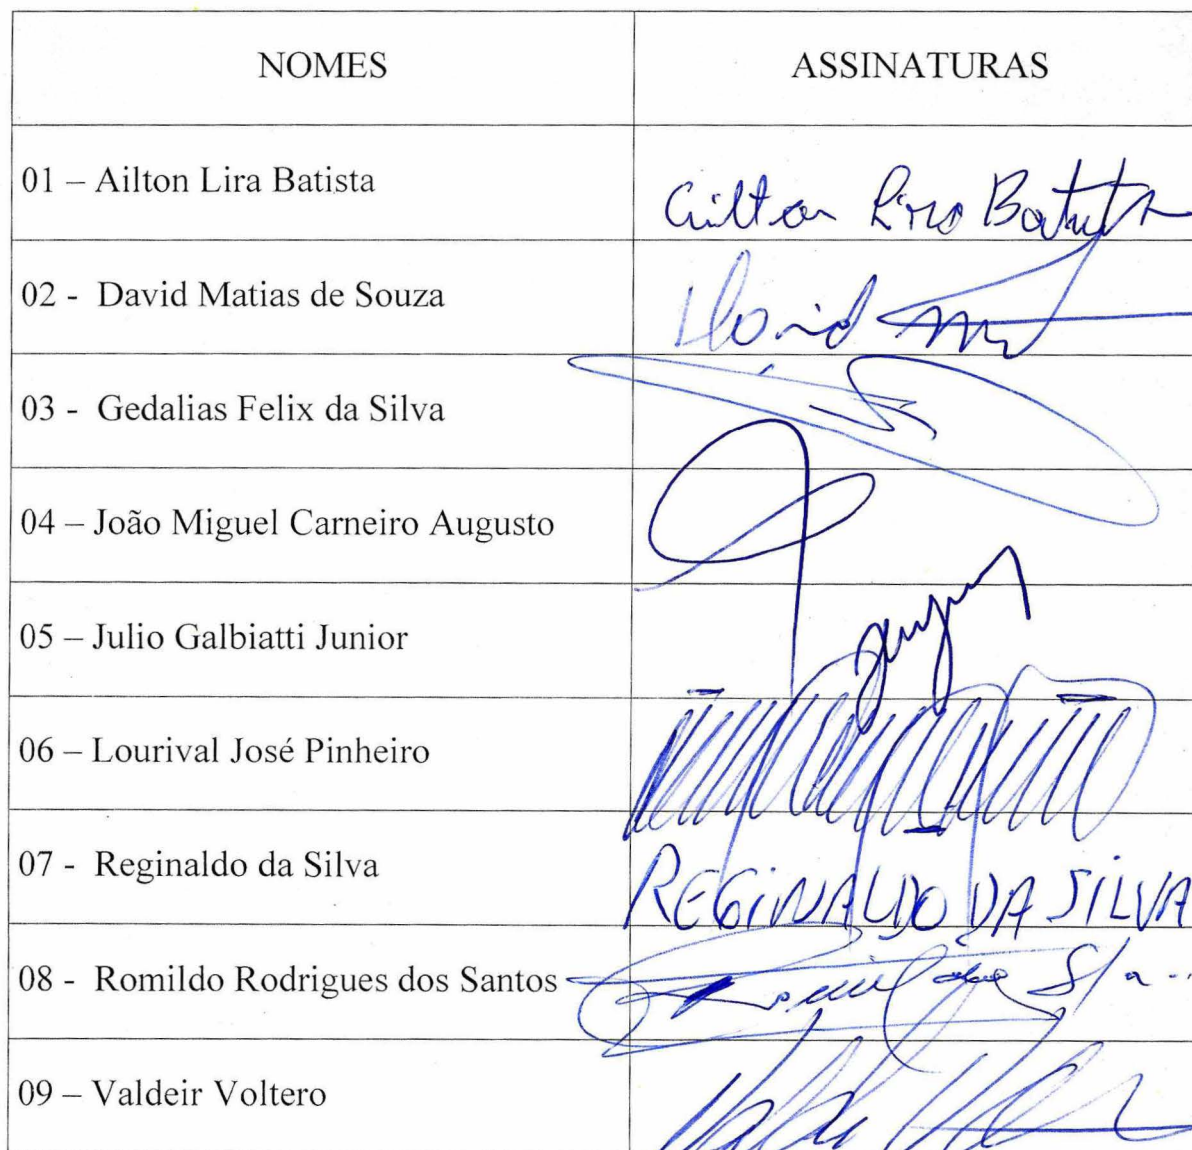 NOMES ASSINATURAS
01 – Ailton Lira Batista Ailton Lira Batista
02 - David Matias de Souza David
03 - Gedalias Felix da Silva
04 – João Miguel Carneiro Augusto
05 – Julio Galbiatti Junior
06 – Lourival José Pinheiro
07 - Reginaldo da Silva REGINALDO DA SILVA
08 - Romildo Rodrigues dos Santos
09 – Valdeir Voltero